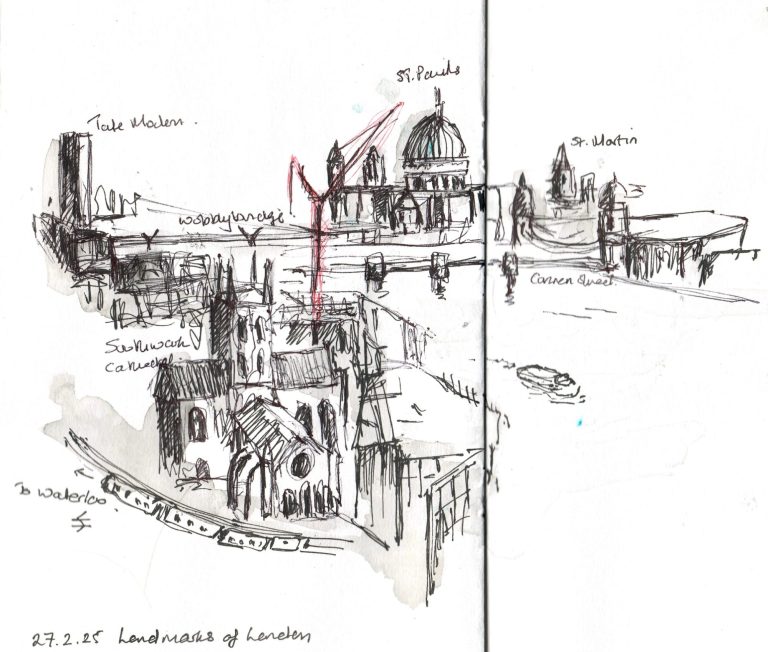 St. Pauls
Tate Modern.
St. Martin
Wobbly bridge.
Cannon Street.
Southwark
Cathedral
To Waterloo.
27.2.25 Landmarks of London